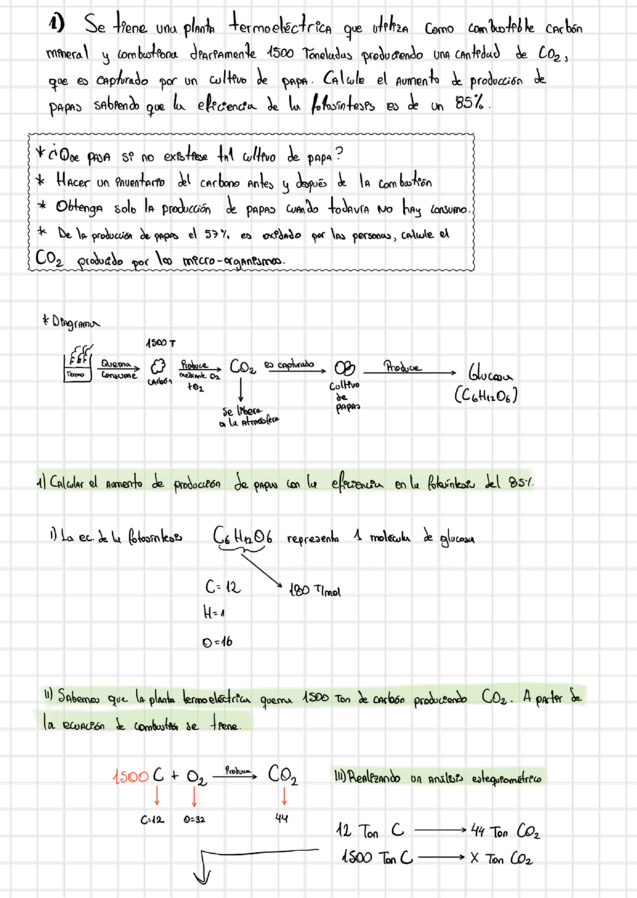 1) Se tiene una planta termoeléctrica que utiliza como combustible carbón
mineral y combustiona diariamente 1500 Toneladas produciendo una cantidad de CO2,
que es capturado por un cultivo de papa. Calcule el aumento de producción de
papas sabiendo que la eficiencia de la fotosintesis es de un 85%.
* ¿Que pasa si no existiese tal cultivo de papa?
* Hacer un inventario del carbono antes y después de la combustión
* Obtenga solo la producción de papas cuando todavía no hay consumo.
* De la producción de papas el 57% es oxidado por las personas, calcule el
CO2 producido por los micro-organismos.
* Diagrama
1500 T
Termo
Quema
Consume
carbón
Produce
mediante O2
+O2
CO2
es capturado
Cultivo
de
papas
Produce
Glucosa
(C6H12O6)
se libera
a la atmosfera
1) Calcular el aumento de producción de papas con la eficiencia en la fotosíntesis del 85%.
I) La ec. de la fotosintesis C6H12O6 representa 1 molecula de glucosa
C=12
180 T/mol
H=1
O=16
II) Sabemos que la planta termoeléctrica quema 1500 Ton de carbón produciendo CO2. A partir de
la ecuación de combustión se tiene.
1500 C + O2 Produce CO2
C=12 O=32 44
III) Realizando un análisis estequiométrico
12 Ton C → 44 Ton CO2
1500 Ton C → X Ton CO2